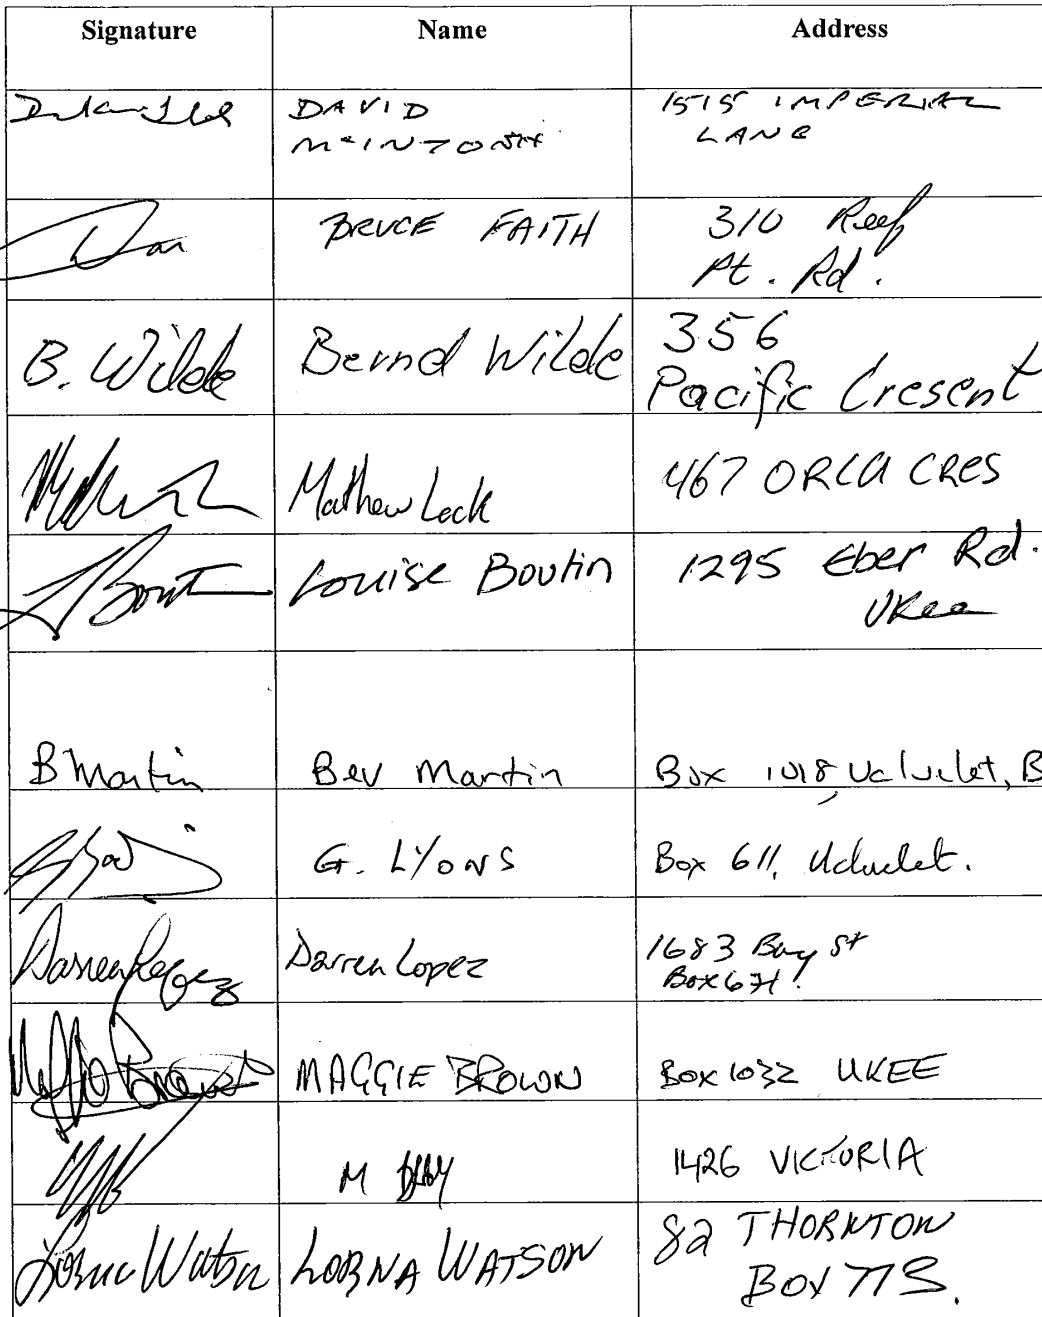 Signature Name Address
DAVID 1515 IMPERIAL
McINTOSH LANE
BRUCE FAITH 310 Reef
Pt. Rd.
B. Wilde Bernd Wilde 356
Pacific Cresent
Mathew Lock 467 ORCA CRES
Louise Boutin 1295 Eber Rd.
UKee
B Martin Bev Martin Box 1018 Ucluelet, B
G. LYONS Box 611, Ucluelet.
Darren Lopez Darren Lopez 1683 Bay St
Box 671.
MAGGIE BROWN Box 1032 UKEE
M 1426 VICTORIA
Lorna Watson LORNA WATSON 82 THORNTON
BOX 773.